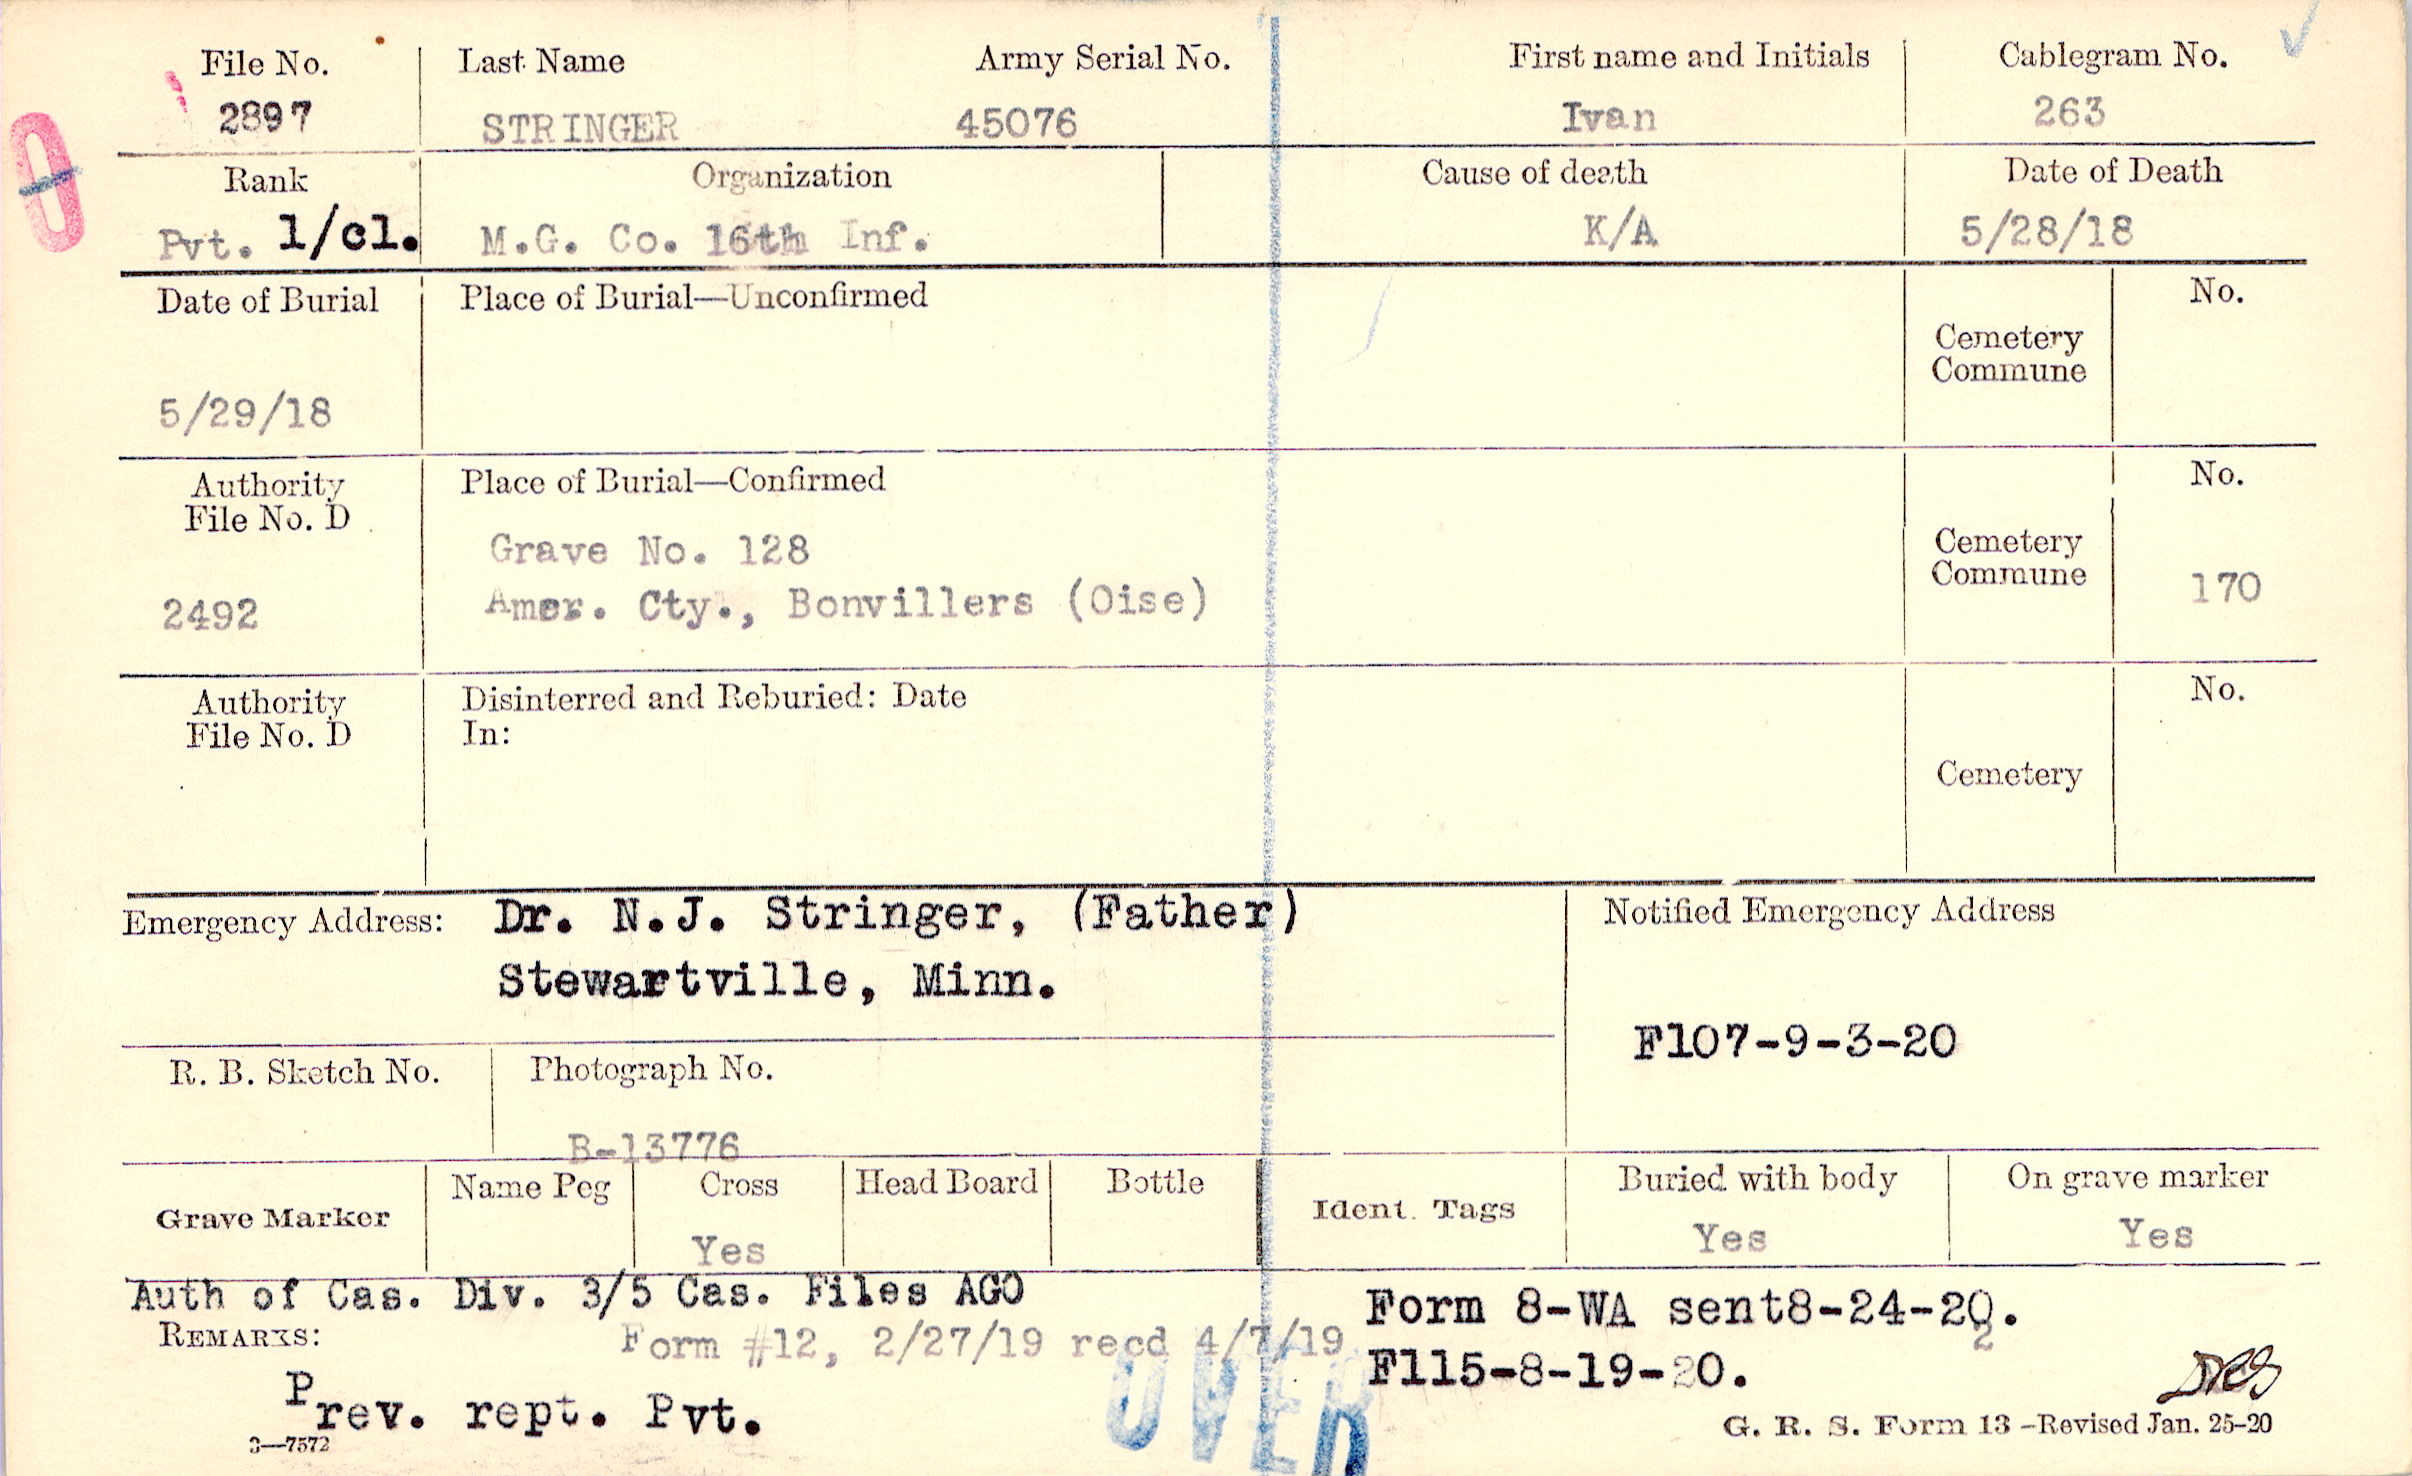 File No.
2897
Last Name
STRINGER
Army Serial No.
45076
First name and Initials
Ivan
Cablegram No.
263
Rank
Pvt. 1/cl.
Organization
M.G. Co. 16th Inf.
Cause of death
K/A
Date of Death
5/28/18
Date of Burial
5/29/18
Place of Burial—Unconfirmed
Cemetery
Commune
No.
Authority
File No. D
2492
Place of Burial—Confirmed
Grave No. 128
Amer. Cty., Bonvillers (Oise)
Cemetery
Commune
No.
170
Authority
File No. D
Disinterred and Reburied: Date
In:
Cemetery
No.
Emergency Address: Dr. N.J. Stringer, (Father)
Stewartville, Minn.
Notified Emergency Address
F107-9-3-20
R. B. Sketch No.
Photograph No.
B-13776
Grave Marker
Name Peg
Cross
Yes
Head Board
Bottle
Ident. Tags
Buried with body
Yes
On grave marker
Yes
Auth of Cas. Div. 3/5 Cas. Files AGO
REMARKS:
Form #12, 2/27/19 recd 4/7/19
Prev. rept. Pvt.
Form 8-WA sent8-24-20.
2
F115-8-19-20.
OVER
3—7572
G. R. S. Form 13 –Revised Jan. 25–20